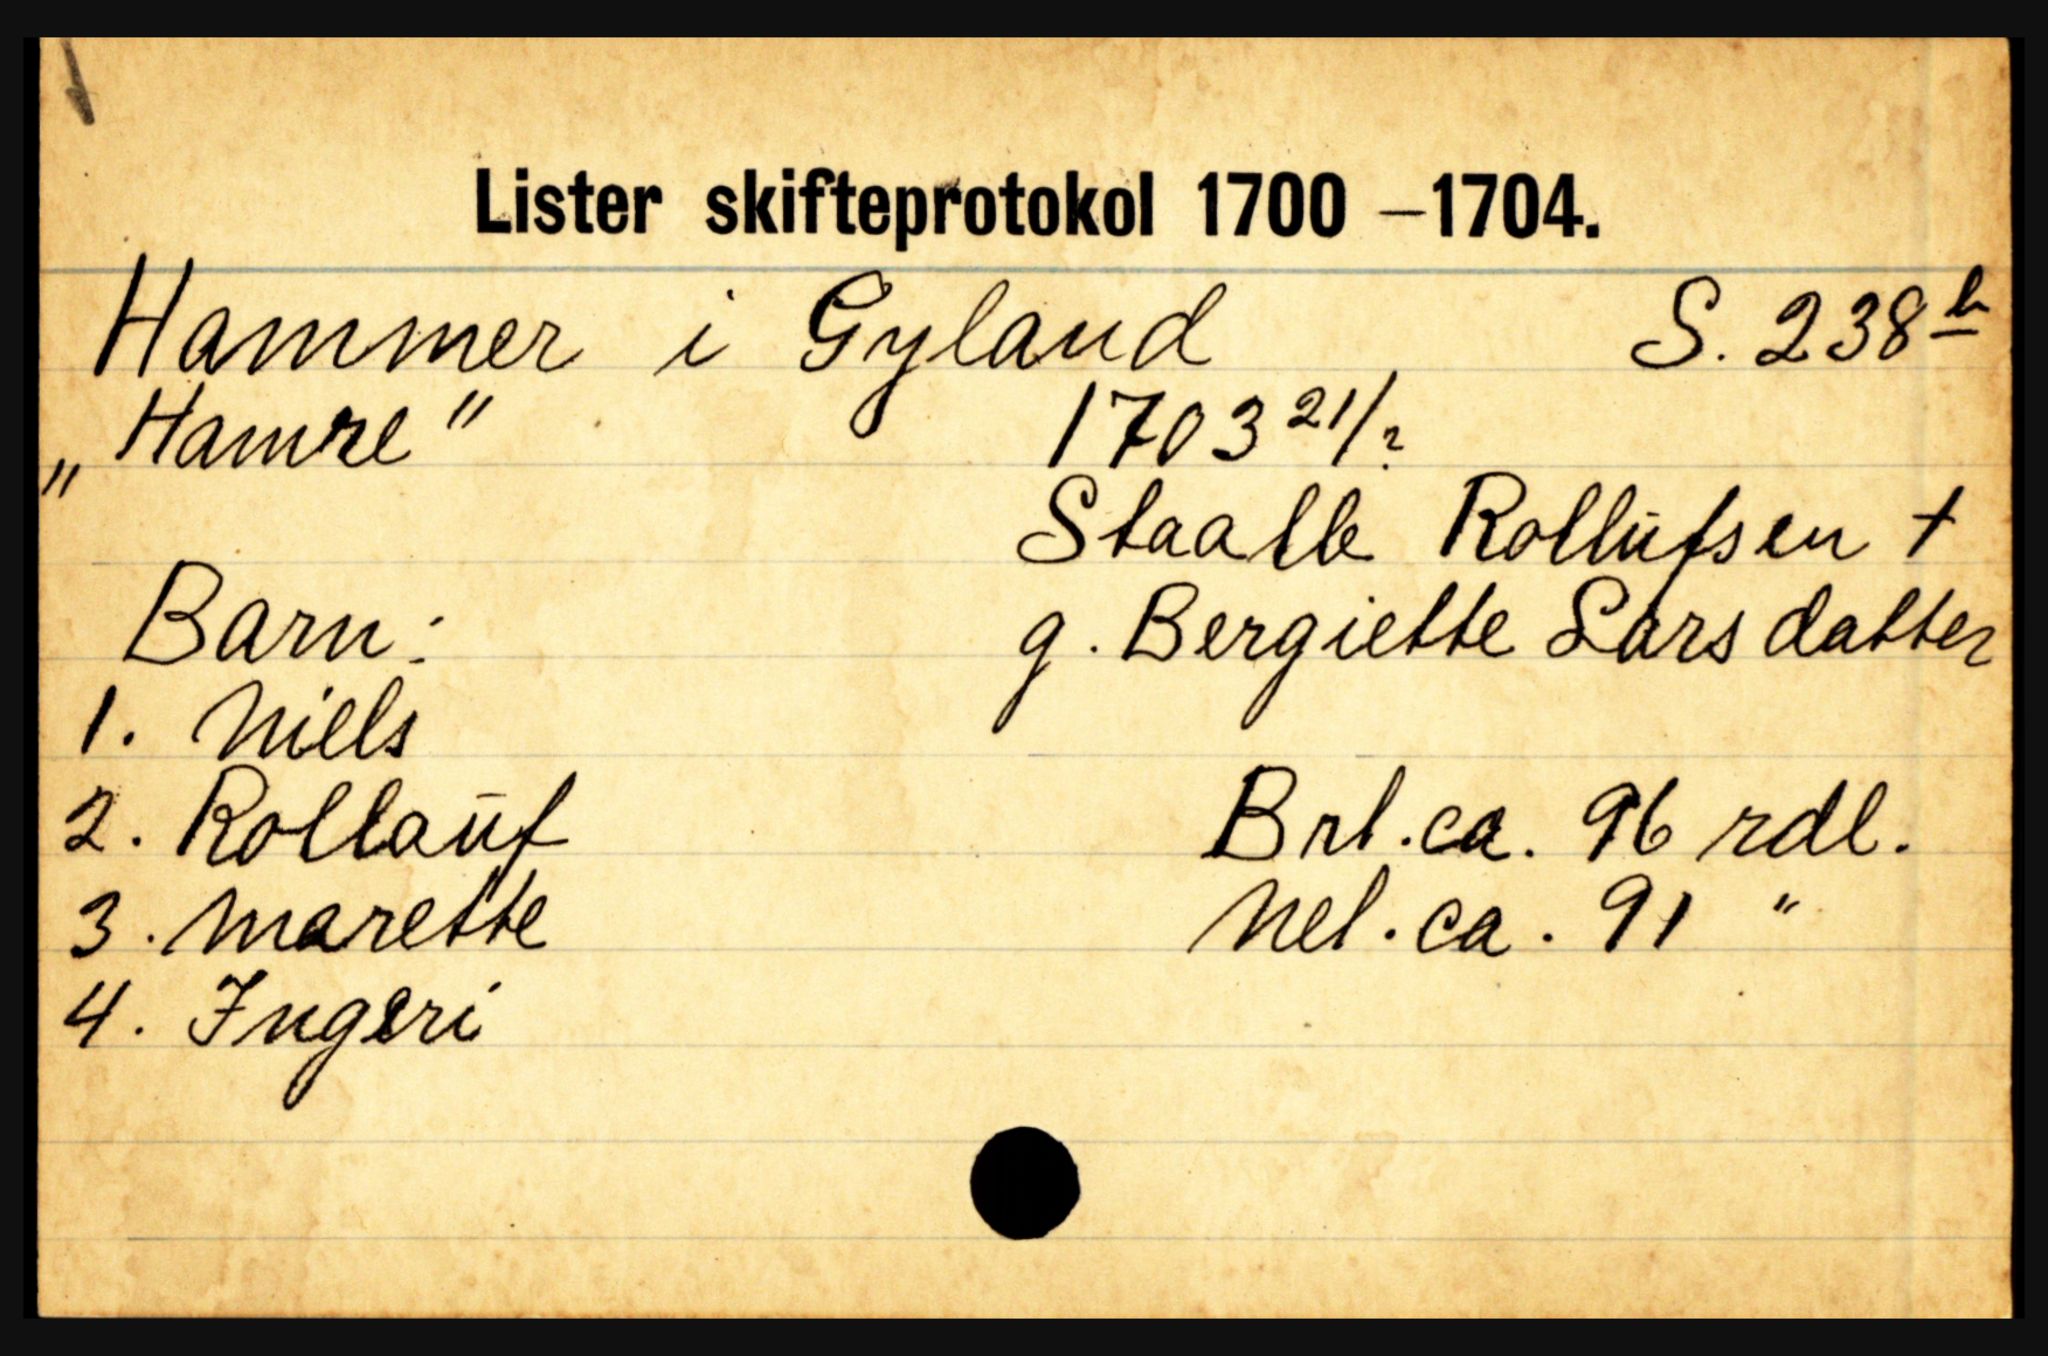 Lister skifteprotokol 1700 – 1704.
Hammer i Gyland S. 238 b
„Hamre" 1703 21/?
Staalle Rollufsen †
Barn: g. Bergiette Larsdatter
1. Niels
2. Rollauf Brl. ca. 96 rdl.
3. Marette Nel. ca. 91 "
4. Ingeri